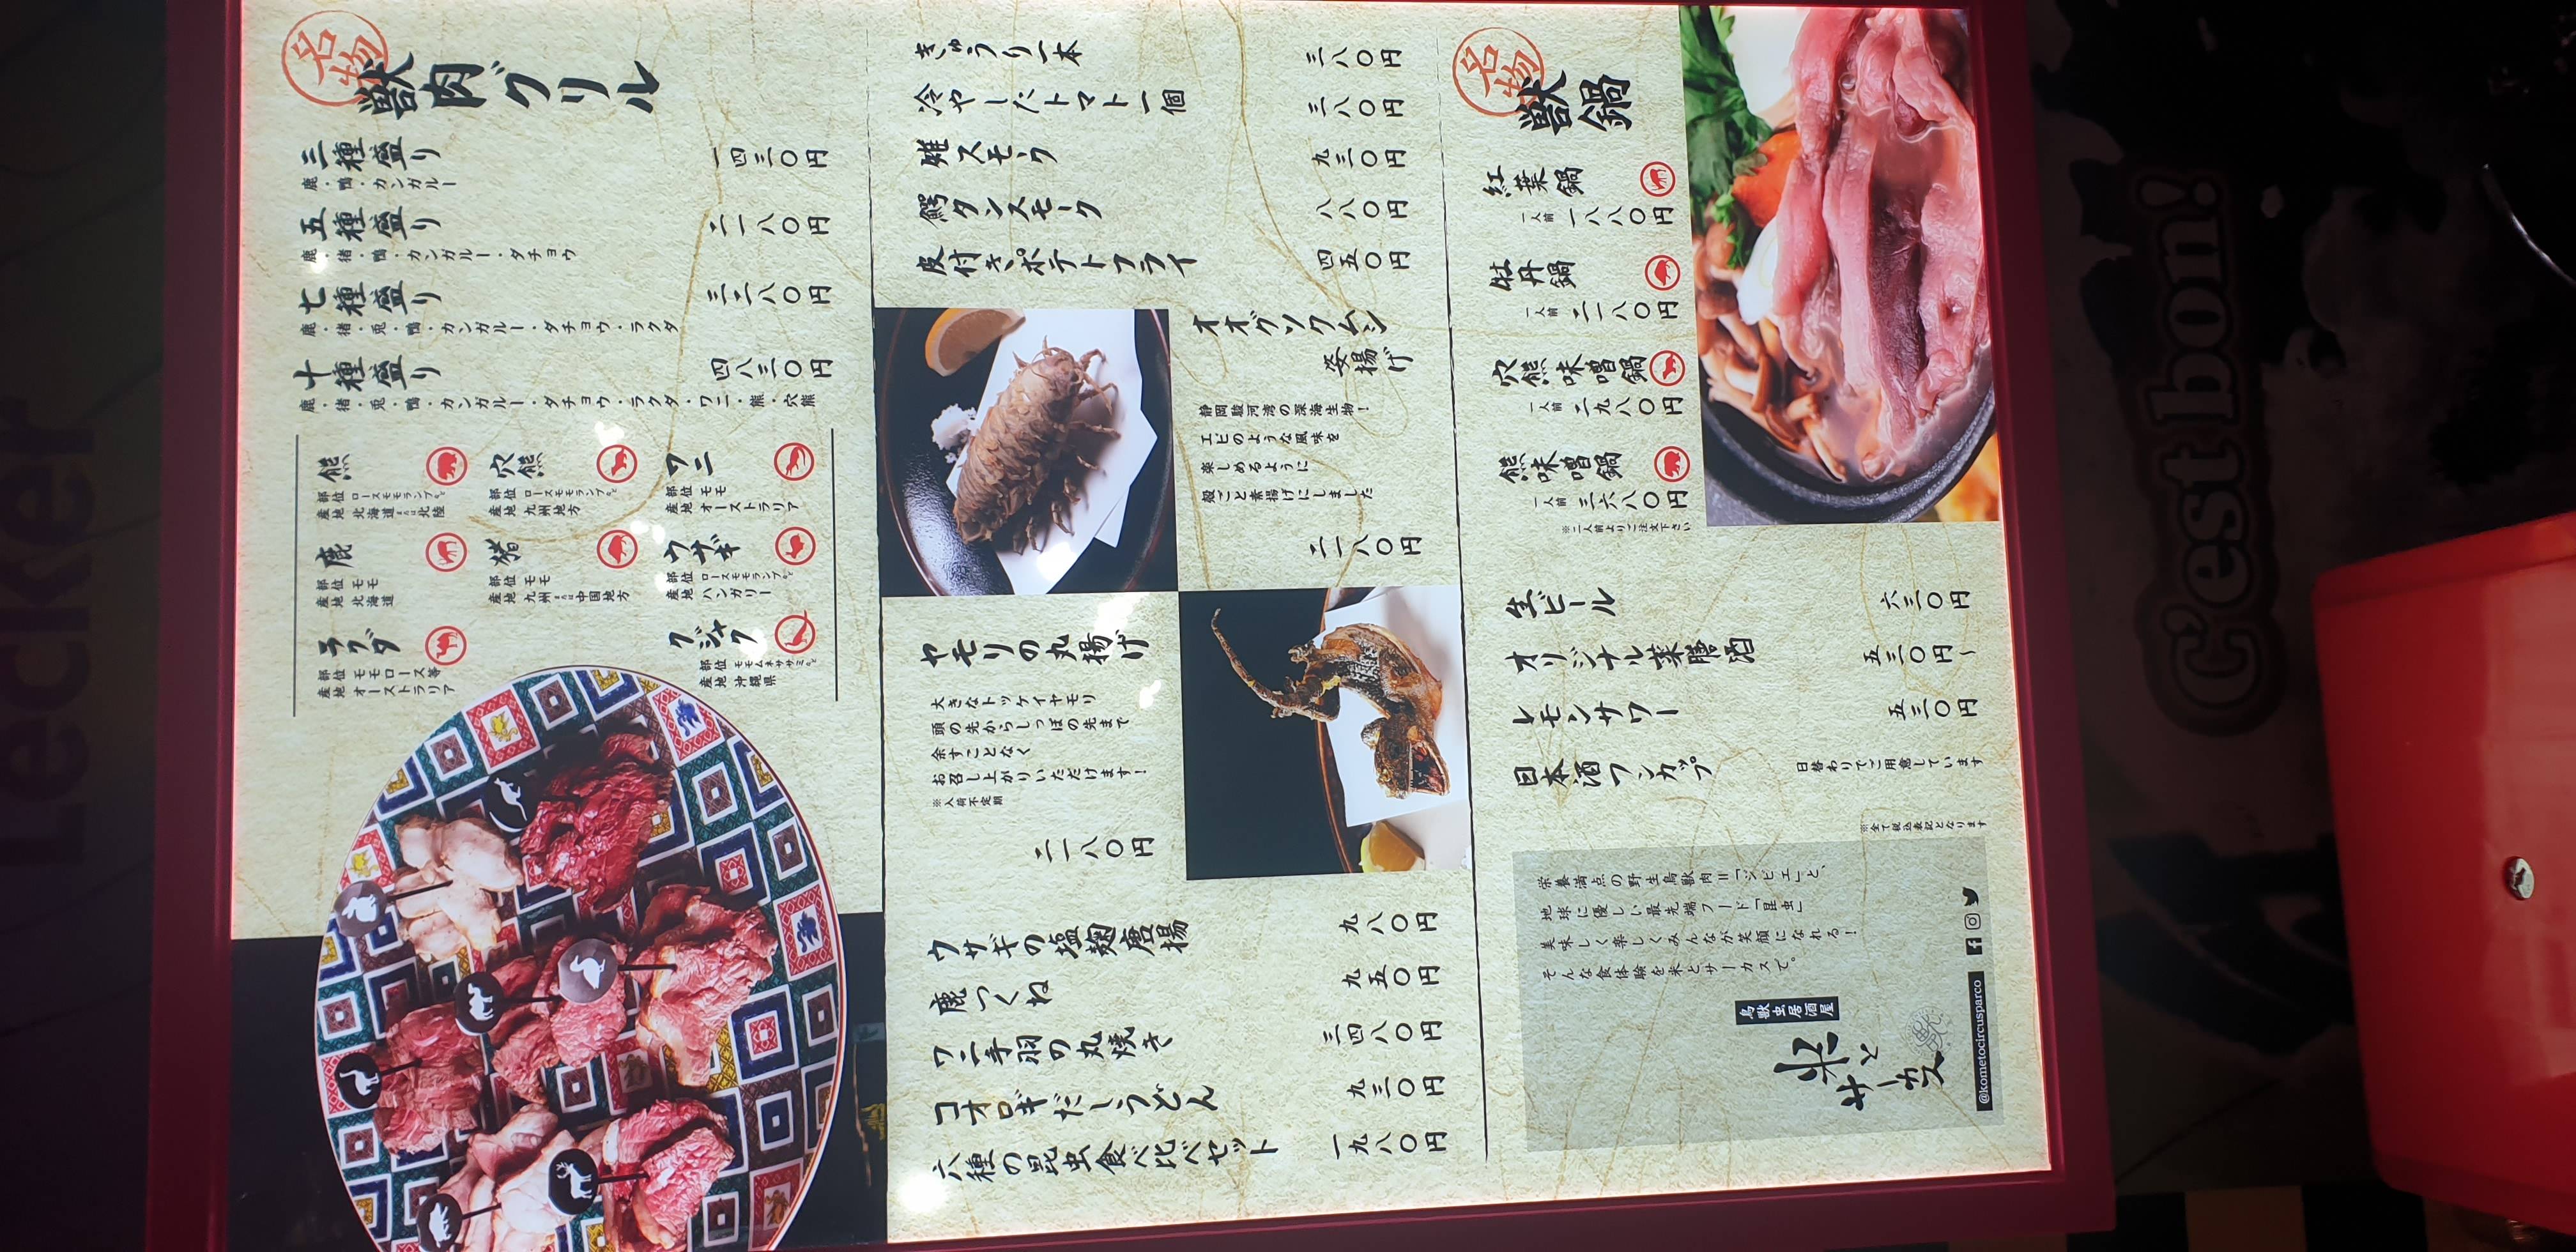 名物
獣肉グリル
三種盛り 一四三〇円
鹿・鴨・カンガルー
五種盛り 二一八〇円
鹿・猪・鴨・カンガルー・ダチョウ
七種盛り 三二八〇円
鹿・猪・兎・鴨・カンガルー・ダチョウ・ラクダ
十種盛り 四八三〇円
鹿・猪・兎・鴨・カンガルー・ダチョウ・ラクダ・ワニ・熊・穴熊
熊
部位 ロースモモランプなど
産地 北海道または北陸
穴熊
部位 ロースモモランプなど
産地 九州地方
ワニ
部位 モモ
産地 オーストラリア
鹿
部位 モモ
産地 北海道
猪
部位 モモ
産地 九州または中国地方
ウサギ
部位 ロースモモランプなど
産地 ハンガリー
ラクダ
部位 モモロース等
産地 オーストラリア
クジャク
部位 モモムネササミなど
産地 沖縄県
きゅうり一本 三八〇円
冷やしたトマト一個 三八〇円
雉スモーク 九三〇円
鰐タンスモーク 八八〇円
皮付きポテトフライ 四五〇円
オオグソクムシ
姿揚げ
静岡駿河湾の深海生物！
エビのような風味を
楽しめるように
殻ごと素揚げにしました
二一八〇円
ヤモリの丸揚げ
大きなトッケイヤモリ
頭の先からしっぽの先まで
余すことなく
お召し上がりいただけます！
※入荷不定期
二一八〇円
ウサギの塩麹唐揚 九八〇円
鹿つくね 九五〇円
ワニ手羽の丸焼き 三四八〇円
コオロギだしうどん 九三〇円
六種の昆虫食べ比べセット 一九八〇円
名物
獣鍋
紅葉鍋
一人前 一八八〇円
牡丹鍋
一人前 二一八〇円
穴熊味噌鍋
一人前 二九八〇円
熊味噌鍋
一人前 三六八〇円
※二人前よりご注文下さい
生ビール 六三〇円
オリジナル薬膳酒 五三〇円〜
レモンサワー 五三〇円
日本酒ワンカップ 日替わりでご用意しています
※全て税込表記となります
栄養満点の野生鳥獣肉＝「ジビエ」と、
地球に優しい最先端フード「昆虫」
美味しく楽しくみんなが笑顔になれる！
そんな食体験を米とサーカスで。
鳥獣虫居酒屋
米と
サーカス
@kometocircusparco
Lecker
C'est bon!